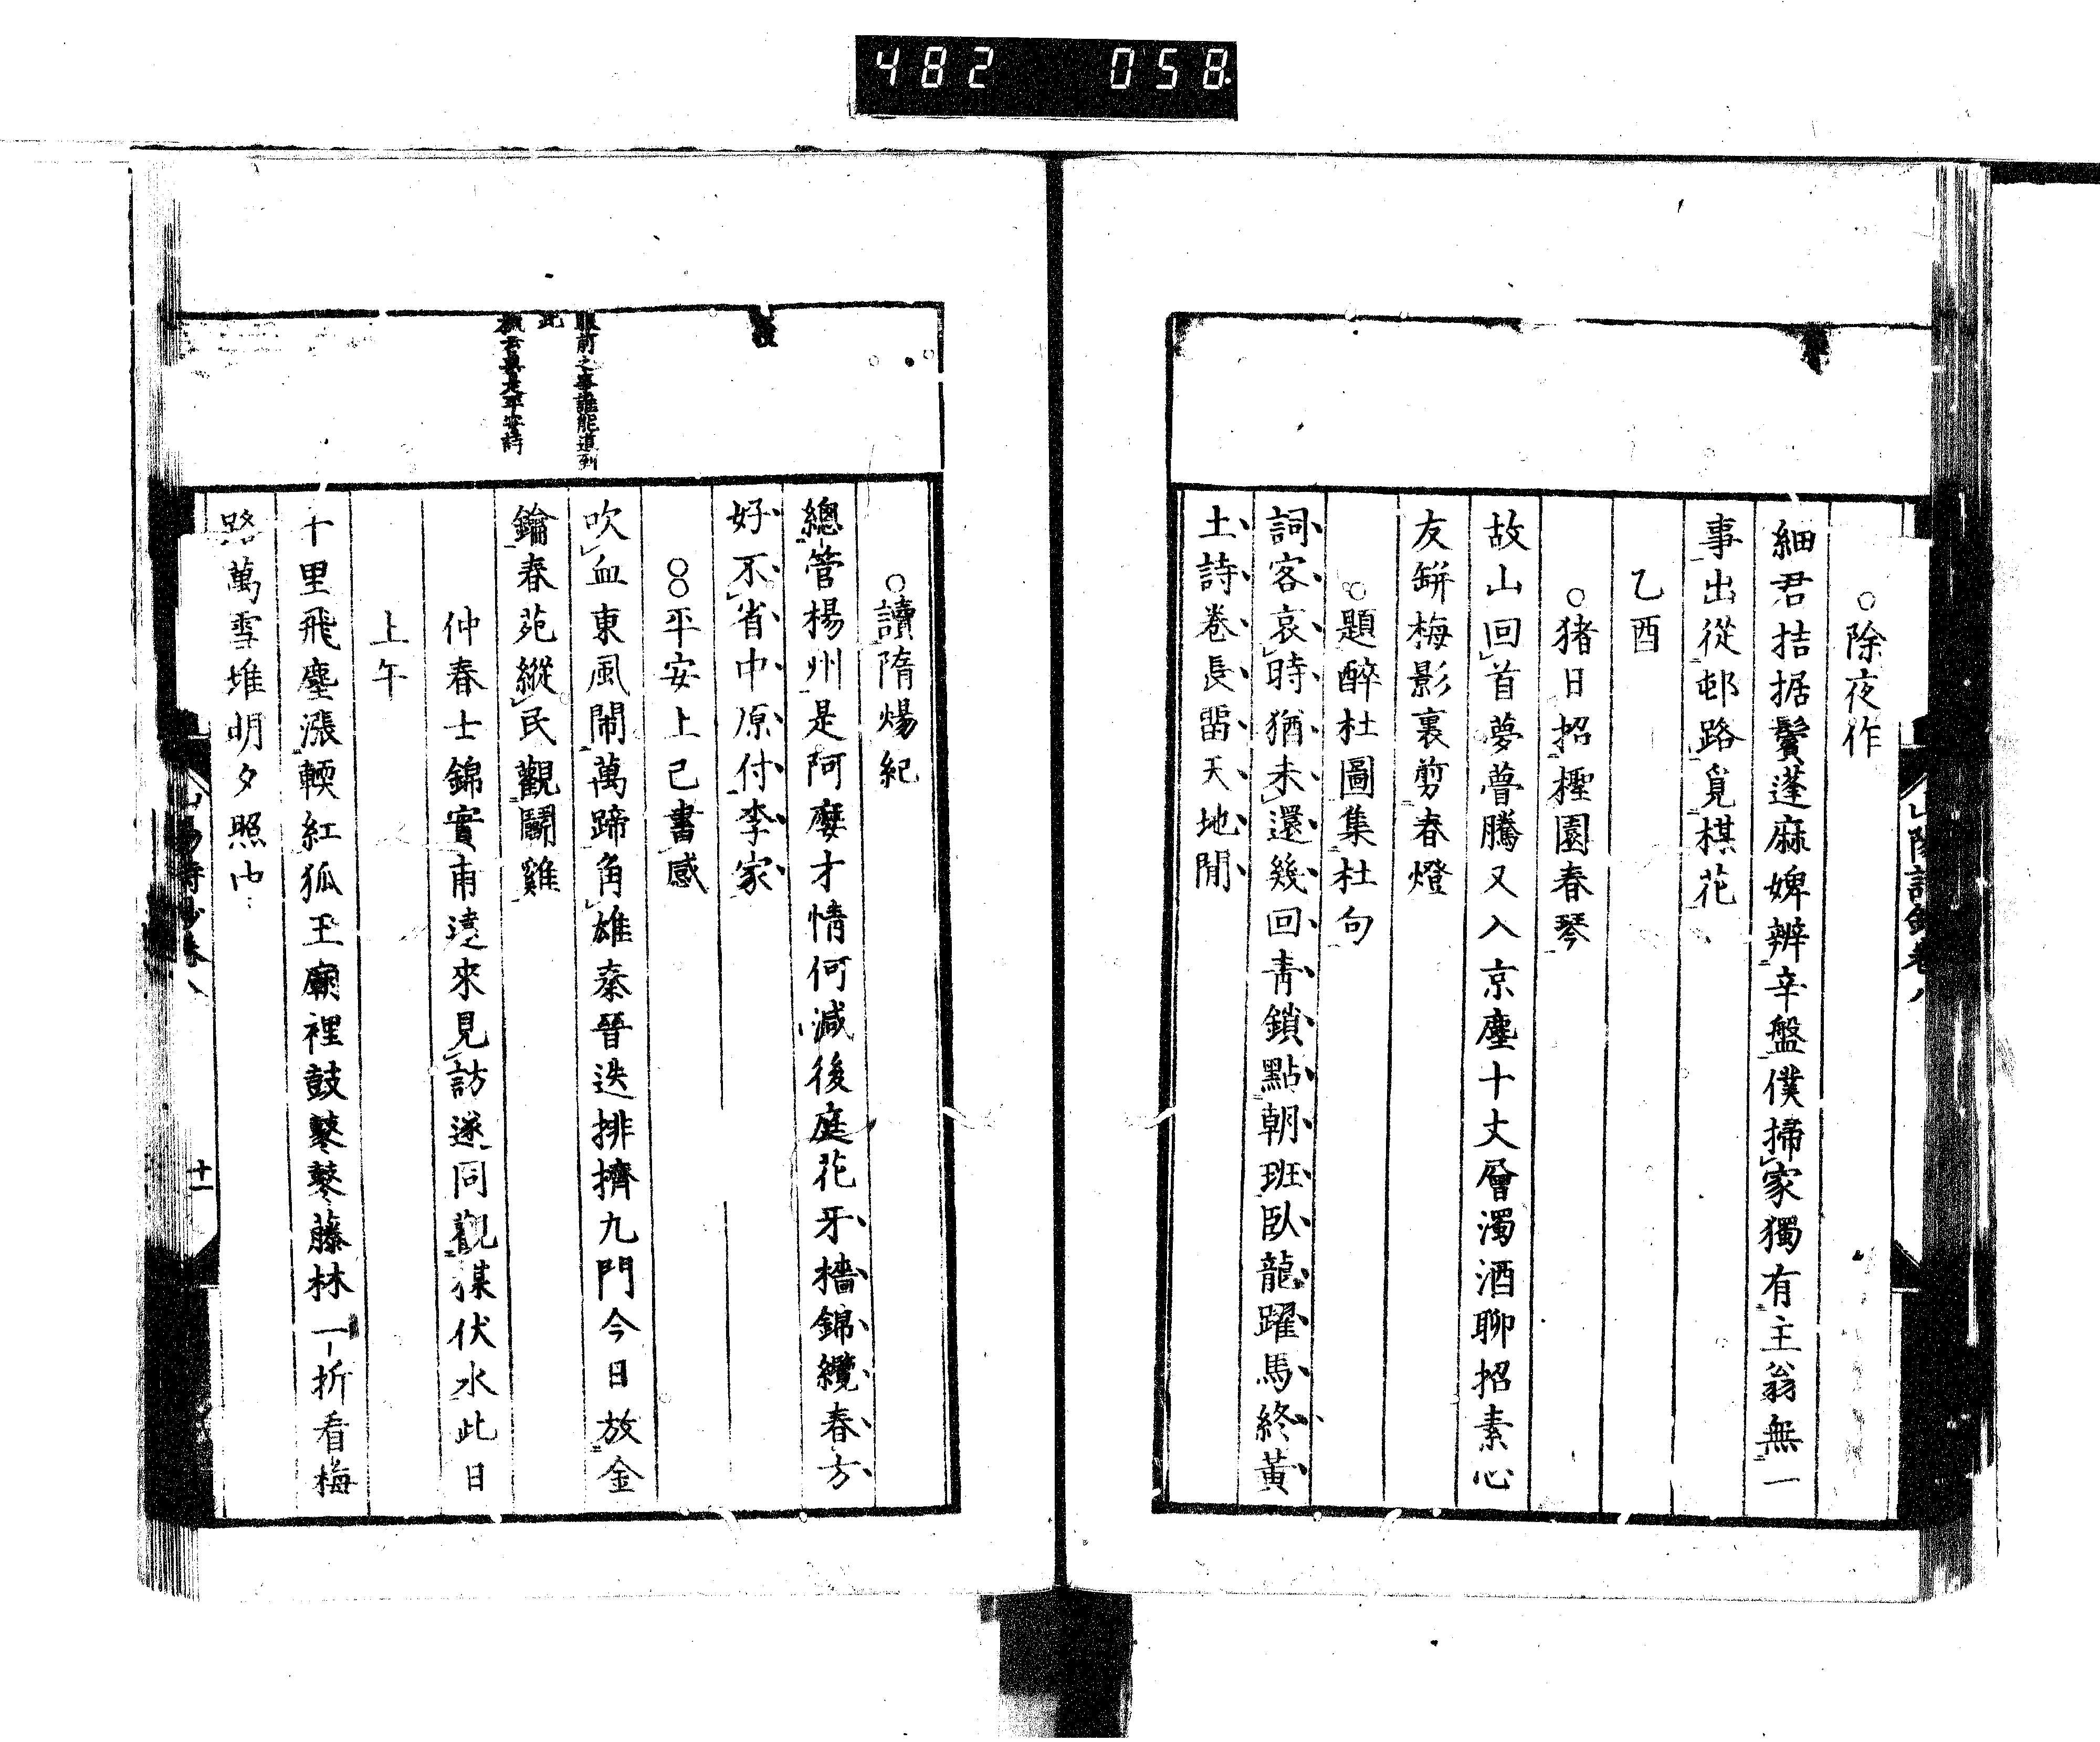 482 058
○除夜作
細君拮据鬢蓬麻婢辨辛盤僕掃家獨有主翁無一
事出從邨路覓棋花
乙酉
○猪日招檉園春琴
故山回首夢瞢騰又入京塵十丈層濁酒聊招素心
友缾梅影裏剪春燈
○題醉杜圖集杜句
詞客哀時猶未還幾回青鎖點朝班臥龍躍馬終黃
土詩卷長留天地閒
○讀隋煬紀
總管楊州是阿㜑才情何減後庭花牙檣錦纜春方
好不省中原付李家
眼前之事誰能道到
此
○○平安上巳書感
吹血東風鬧萬蹄角雄秦晉迭排擠九門今日放金
鑰春苑縱民觀鬭雞
仲春士錦實甫遠來見訪遂同觀楳伏水此日
上午
十里飛塵漲輭紅狐王廟裡鼓鼕鼕藤林一折看梅
路萬雪堆明夕照中
山陽詩鈔卷八
十一